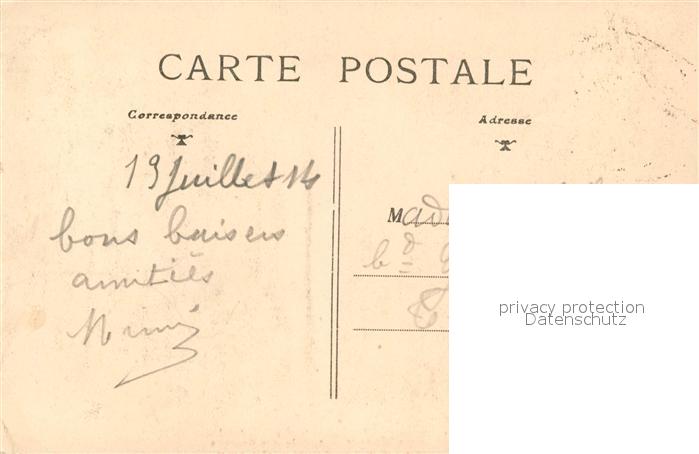 CARTE POSTALE
Correspondance
Adresse
19 Juillet 14
bons baisers
amitiés
Mimi
Mad
bd
privacy protection
Datenschutz